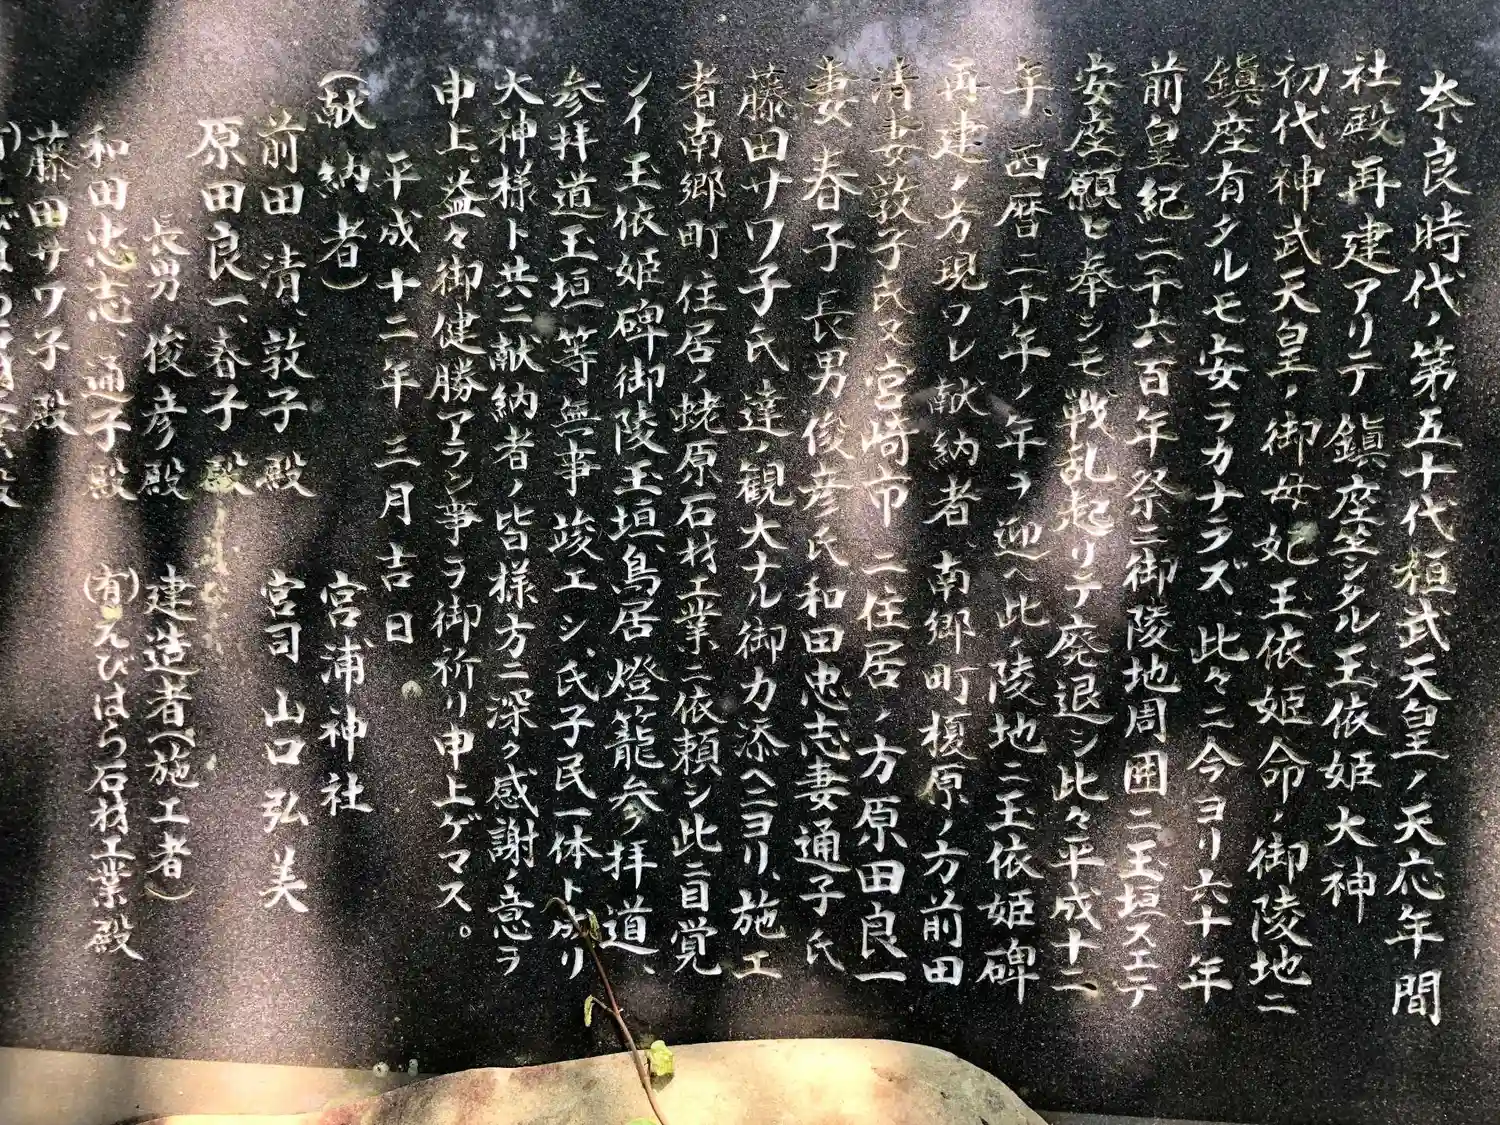 奈良時代ノ第五十代桓武天皇ノ天応年間
社殿再建アリテ鎮座坐シタル玉依姫大神
初代神武天皇ノ御母妃玉依姫命ノ御陵地ニ
鎮座有タルモ安ラカナラズ、此々ニ今ヨリ六十年
前皇紀二千六百年祭ニ御陵地周囲ニ玉垣スエテ
安座願ヒ奉シモ戦乱起リテ廃退シ此々平成十二
年、西暦二千年ノ年ヲ迎ヘ此ノ陵地ニ玉依姫碑
再建ノ方現ワレ献納者、南郷町榎原ノ方前田
清妻敦子氏又宮崎市ニ住居ノ方原田良一
妻春子長男俊彦氏和田忠志妻通子氏
藤田サワ子氏達ノ観大ナル御力添ヘニヨリ、施工
者南郷町住居ノ蛯原石材工業ニ依頼シ此ニ目覚
シイ玉依姫碑御陵玉垣、鳥居燈籠参拝道、
参拝道玉垣等無事竣工シ、氏子民一体ト成リ
大神様ト共ニ献納者ノ皆様方ニ深ク感謝ノ意ヲ
申上。益々御健勝アラン事ヲ御祈リ申上ゲマス。
平成十二年三月吉日
(献納者) 宮浦神社
前田清、敦子殿 宮司山口弘美
原田良一、春子殿
長男俊彦殿 建造者(施工者)
和田忠志、通子殿 (有)えびはら石材工業殿
藤田サワ子殿